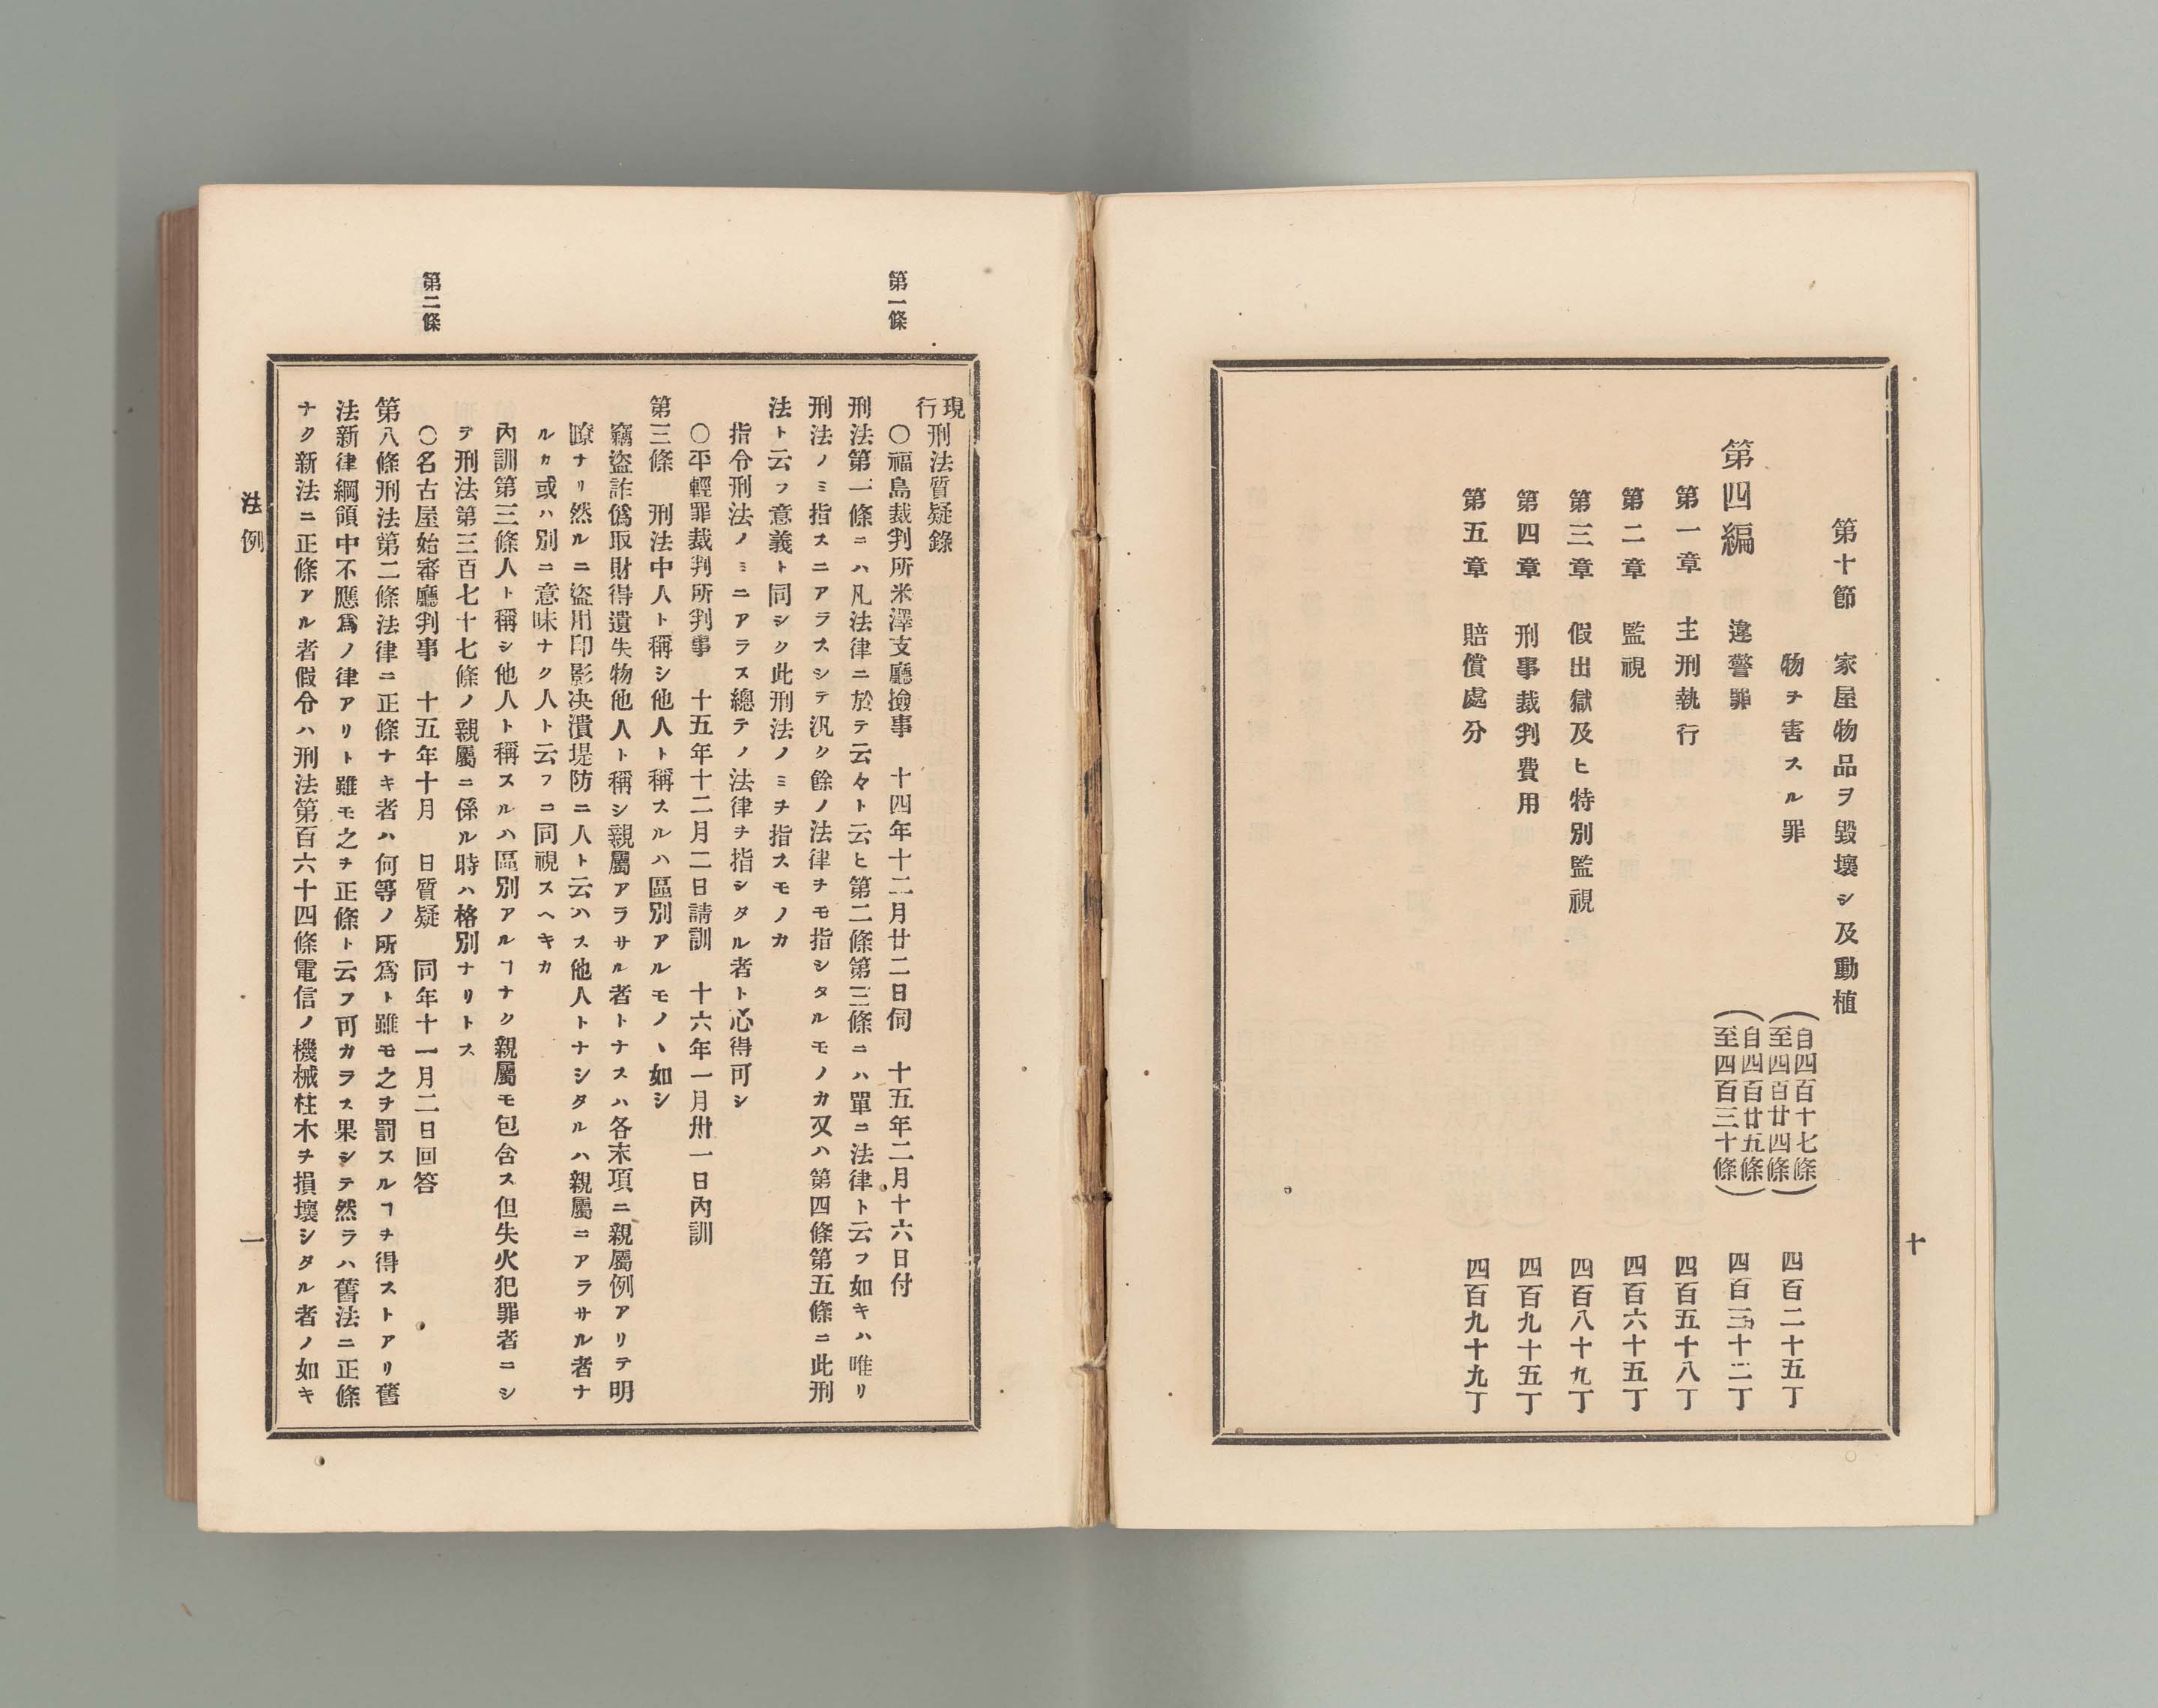 十
第十節　家屋物品ヲ毀壞シ及動植
物ヲ害スル罪　(自四百十七條至四百廿四條)　四百二十五丁
第四編　違警罪　(自四百廿五條至四百三十條)　四百三十二丁
第一章　主刑執行　四百五十八丁
第二章　監視　四百六十五丁
第三章　假出獄及ヒ特別監視　四百八十九丁
第四章　刑事裁判費用　四百九十五丁
第五章　賠償處分　四百九十九丁
第一條
第二條
現行刑法質疑錄
〇福島裁判所米澤支廳撿事　十四年十二月廿二日伺　十五年二月十六日付
刑法第一條ニハ凡法律ニ於テ云々ト云ヒ第二條第三條ニハ單ニ法律ト云フ如キハ唯リ
刑法ノミ指スニアラスシテ汎ク餘ノ法律ヲモ指シタルモノカ又ハ第四條第五條ニ此刑
法ト云フ意義ト同シク此刑法ノミヲ指スモノカ
指令刑法ノミニアラス總テノ法律ヲ指シタル者ト心得可シ
〇平輕罪裁判所判事　十五年十二月二日請訓　十六年一月卅一日內訓
第三條　刑法中人ト稱シ他人ト稱スルハ區別アルモノヽ如シ
竊盜詐僞取財得遺失物他人ト稱シ親屬アラサル者トナスハ各末項ニ親屬例アリテ明
瞭ナリ然ルニ盜用印影决潰堤防ニ人ト云ハス他人トナシタルハ親屬ニアラサル者ナ
ルカ或ハ別ニ意味ナク人ト云フニ同視スヘキカ
內訓第三條人ト稱シ他人ト稱スルハ區別アルヿナク親屬モ包含ス但失火犯罪者ニシ
テ刑法第三百七十七條ノ親屬ニ係ル時ハ格別ナリトス
〇名古屋始審廳判事　十五年十月　日質疑　同年十一月二日回答
第八條刑法第二條法律ニ正條ナキ者ハ何等ノ所爲ト雖モ之ヲ罰スルヿヲ得ストアリ舊
法新律綱領中不應爲ノ律アリト雖モ之ヲ正條ト云フ可カラス果シテ然ラハ舊法ニ正條
ナク新法ニ正條アル者假令ハ刑法第百六十四條電信ノ機械柱木ヲ損壞シタル者ノ如キ
法例
一